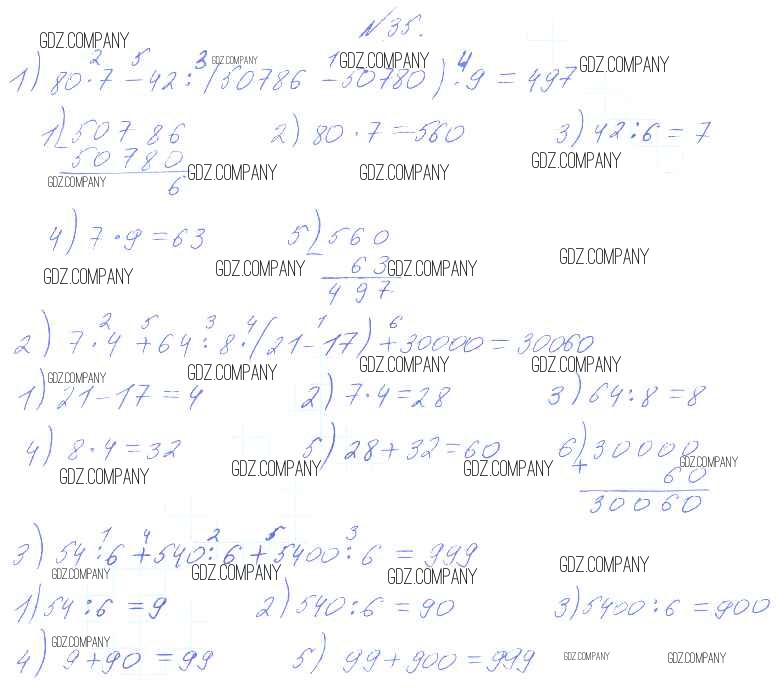 №35.
GDZ.COMPANY
2 5 3 GDZ.COMPANY 1 GDZ.COMPANY 4 GDZ.COMPANY
1) 80·7 – 42 : (50786 – 50780) · 9 = 497
1) 50786 2) 80·7=560 3) 42:6=7
– 50780 GDZ.COMPANY GDZ.COMPANY GDZ.COMPANY
GDZ.COMPANY 6
4) 7·9=63 5) 560
– 63 GDZ.COMPANY GDZ.COMPANY
GDZ.COMPANY GDZ.COMPANY 497
2 5 3 4 1 6
2) 7·4 + 64 : 8 · (21–17) + 30000 = 30060
GDZ.COMPANY GDZ.COMPANY GDZ.COMPANY GDZ.COMPANY
1) 21–17=4 2) 7·4=28 3) 64:8=8
4) 8·4=32 5) 28+32=60 6) 30000
+ 60 GDZ.COMPANY
GDZ.COMPANY GDZ.COMPANY GDZ.COMPANY 30060
1 4 2 5 3
3) 54:6 + 540:6 + 5400:6 = 999
GDZ.COMPANY GDZ.COMPANY GDZ.COMPANY GDZ.COMPANY
1) 54:6=9 2) 540:6=90 3) 5400:6=900
GDZ.COMPANY
4) 9+90=99 5) 99+900=999 GDZ.COMPANY GDZ.COMPANY